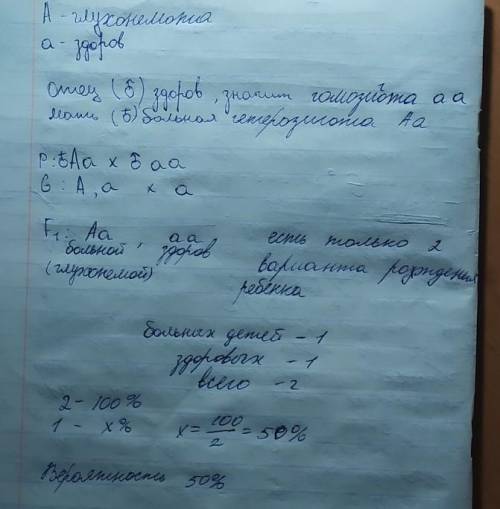 А - глухонемота
а - здоров
Отец (♂) здоров, значит гомозигота аа
мать (♀) больная гетерозигота Аа
P: ♀Аа x ♂ аа
G: А, а x а
F₁: Аа, аа есть только 2
больной здоров варианта рождения
(глухонемой) ребёнка
больных детей - 1
здоровых - 1
всего - 2
2 - 100%
1 - x% x = 100/2 = 50%
Вероятность 50%